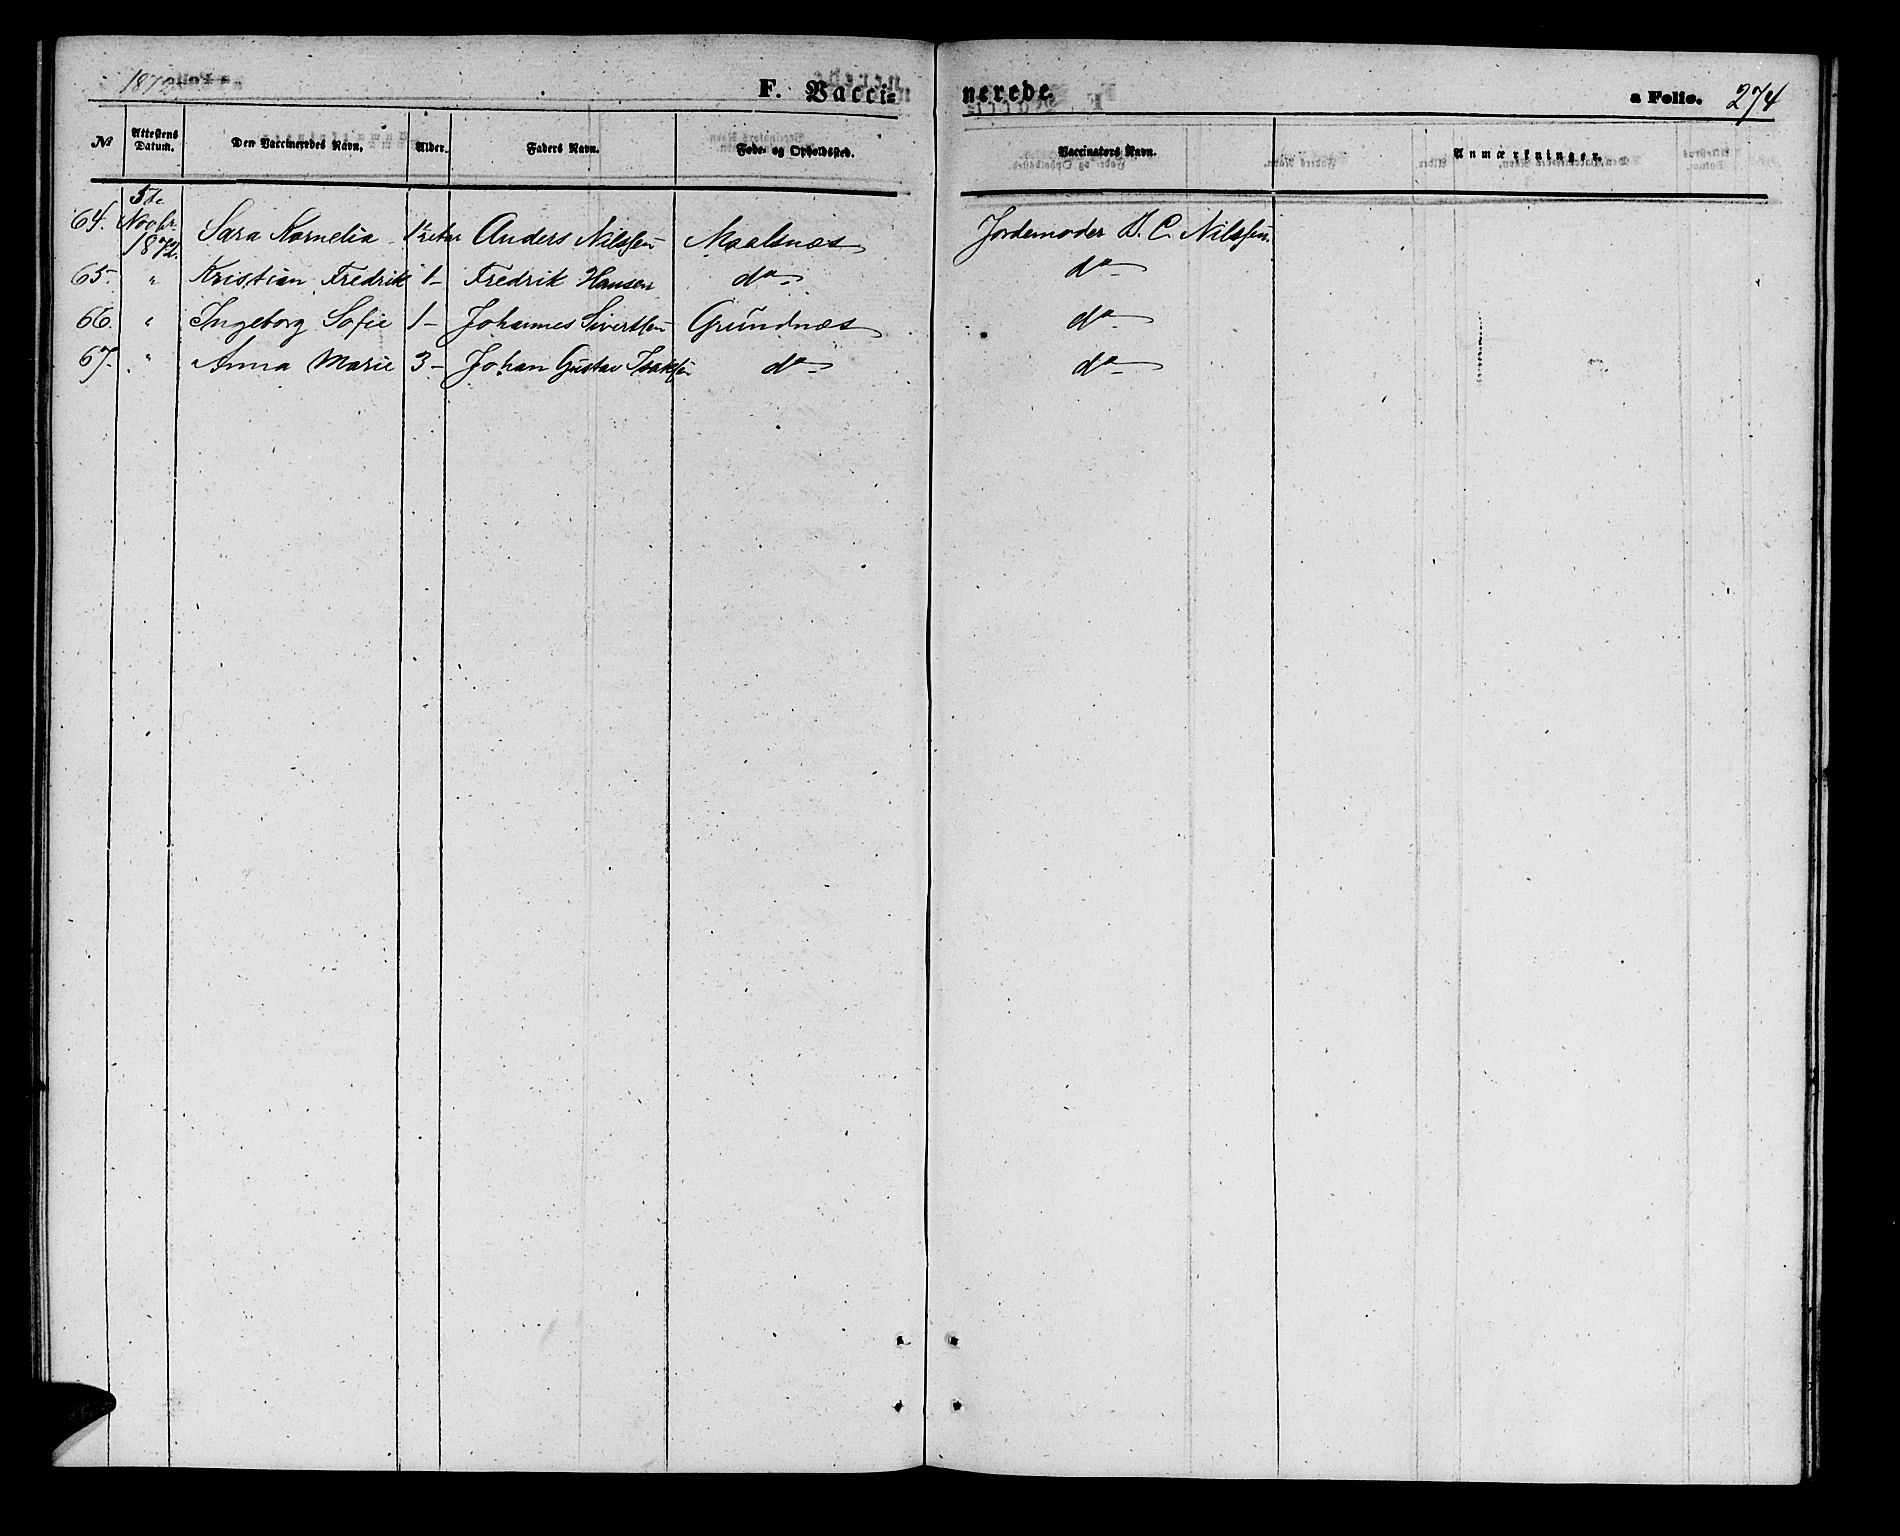 1872. F. Vacci- nerede. a Folio. 274
No Attestens Datum. Den Vaccineredes Navn. Alder. Faders Navn. Føde- og Opholdssted. Vaccinators Navn. Anmærkninger.
5te
64. Novbr. Sara Kornelia Anders Nilssen Maalsnæs Jordemoder B. C. Nilssen.
1872.
65 " Kristian Fredrik 1 - Fredrik Hansen do - do -
66. " Ingeborg Sofie 1 - Johannes Sivertsen Grundnæs do -
67. " Anna Marie 3 - Johan Gustav Isaksen do - do -